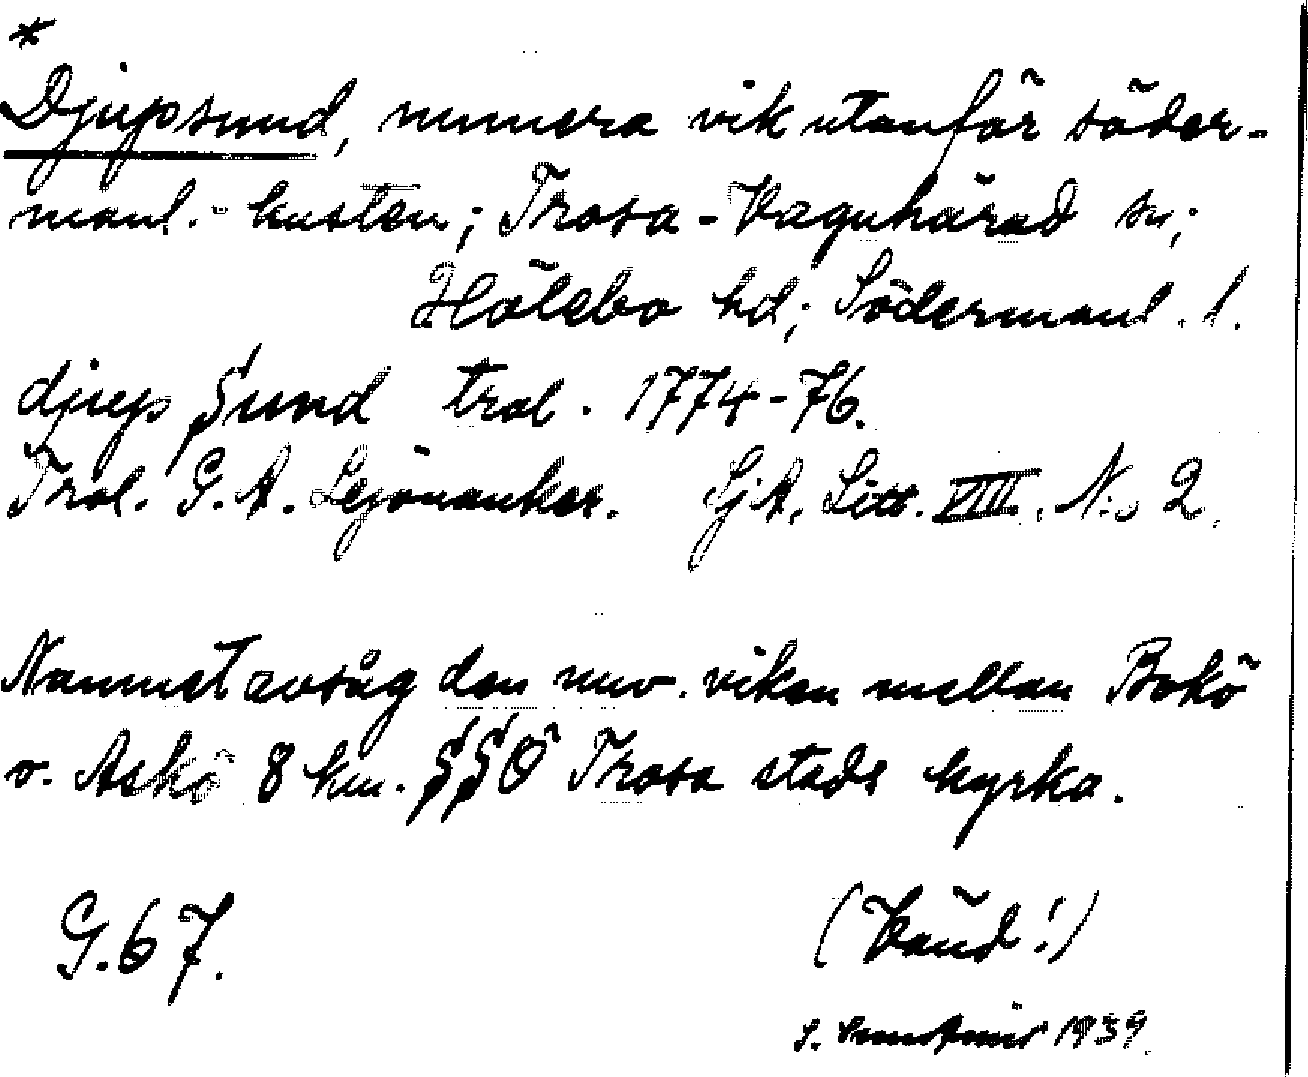 *
Djupsund, numera vik utanför söder-
manl.-kusten; Trosa-Vagnhärad sn;
Hölebo hd; Södermanl. l.
djup Sund trol. 1774-76.
Trol. G. A. Lejonanker. SjA. Litt. VIII. No 2.
Namnet avsåg den nuv. viken mellan Bokö
o. Askö 8 km. SSÖ Trosa stads kyrka.
G.67.
(Vänd!)
1939